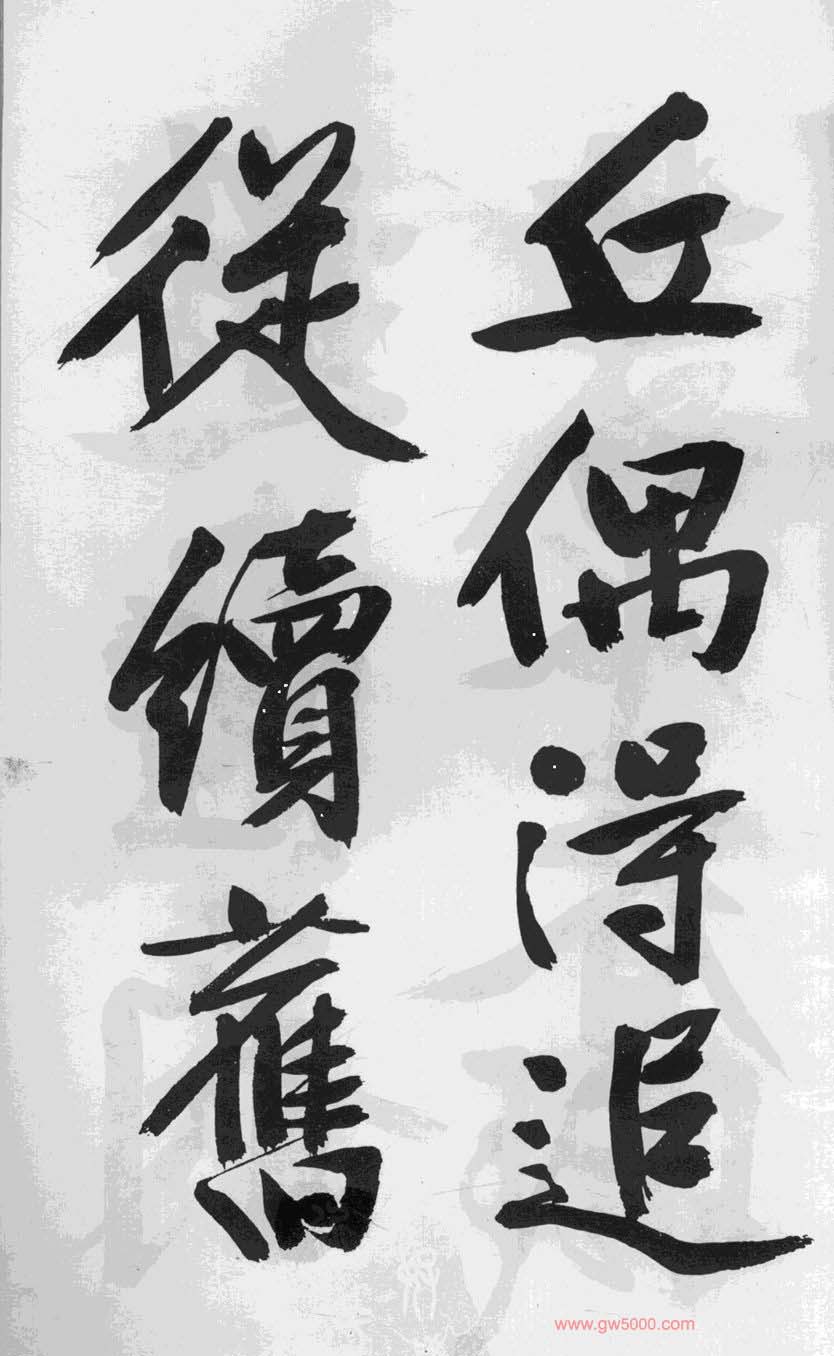 丘偶得追
從續舊
www.gw5000.com